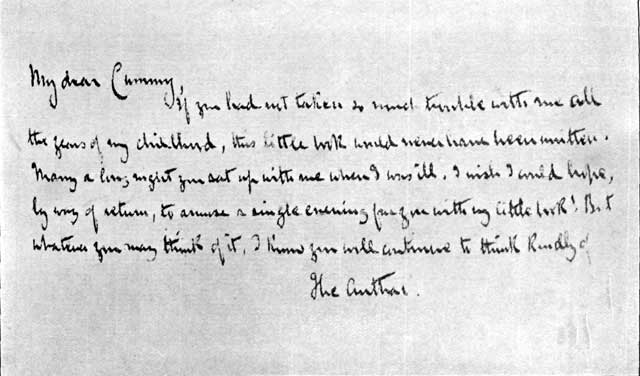 My dear Cummy,
If you had not taken so much trouble with me all
the years of my childhood, this little book would never have been written.
Many a long night you sat up with me when I was ill. I wish I could hope,
by way of return, to amuse a single evening for you with my little book! But
whatever you may think of it, I know you will continue to think kindly of
The Author.